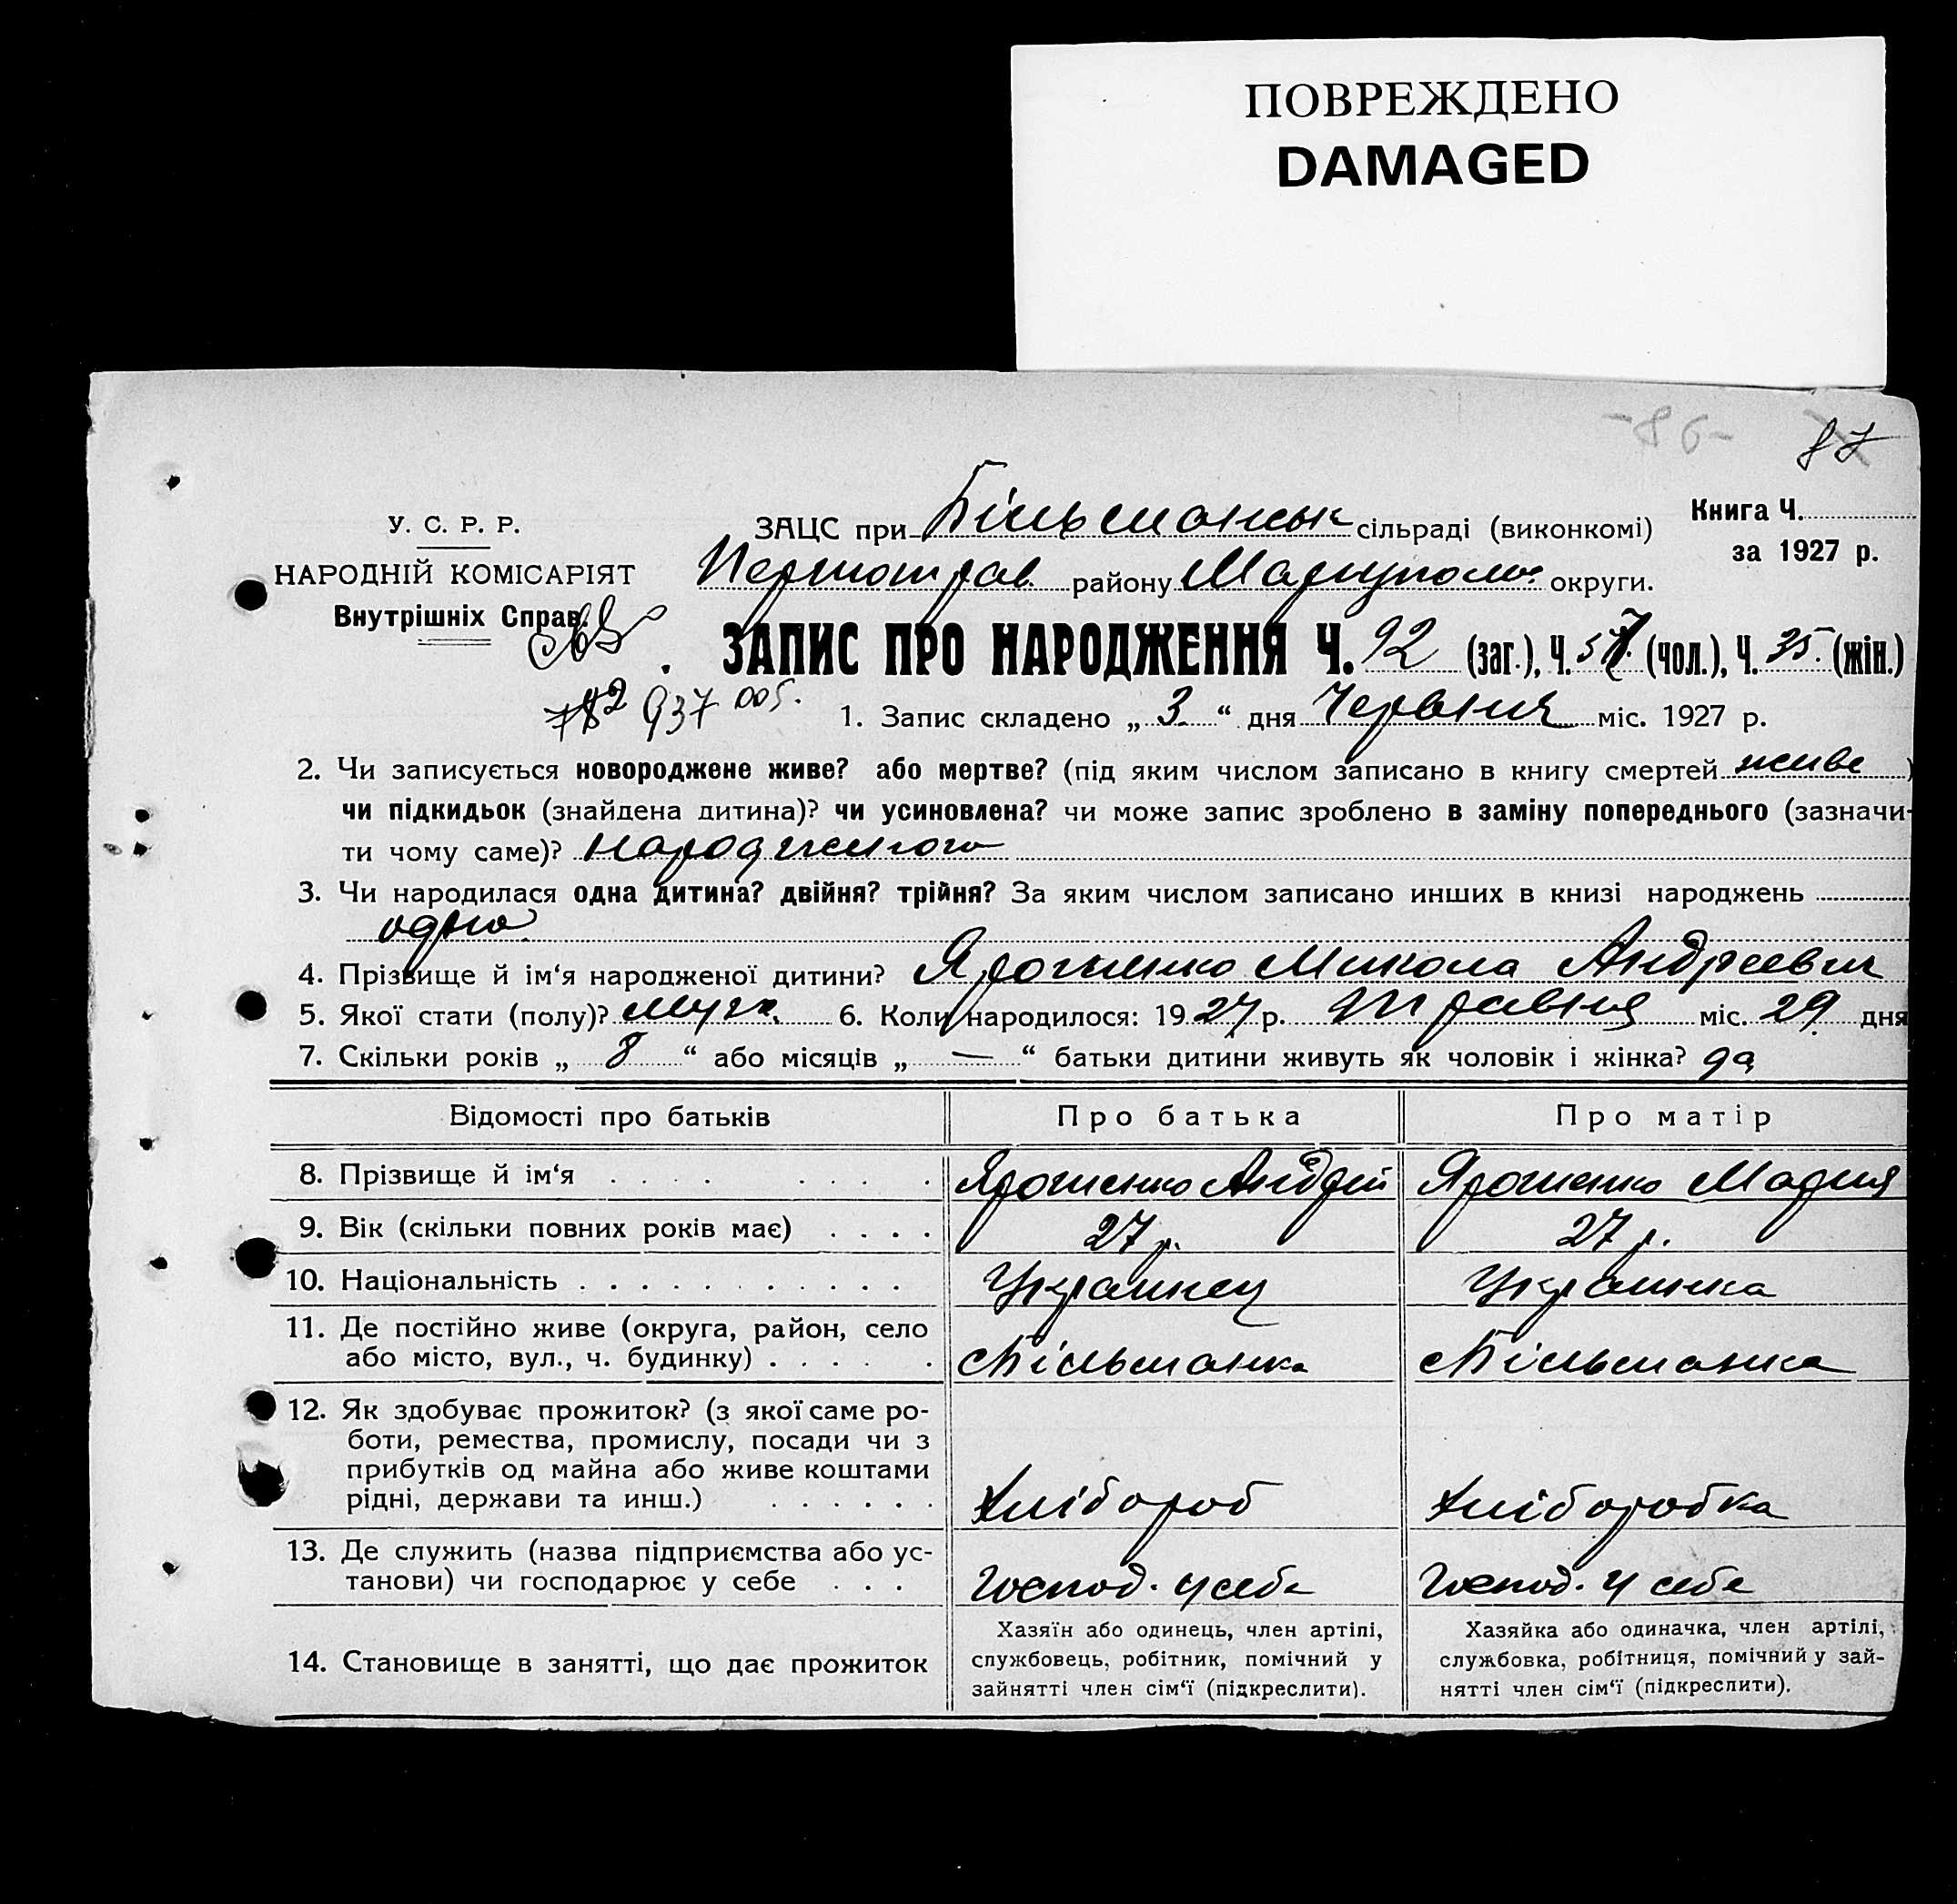 ПОВРЕЖДЕНО
DAMAGED
-86-
87
У. С. Р. Р.
НАРОДНІЙ КОМІСАРІЯТ
Внутрішніх Справ.
ЗАЦС при Більшанськ сільраді (виконкомі)
Книга Ч.
за 1927 р.
району Маріуполь округи.
ЗАПИС ПРО НАРОДЖЕННЯ Ч. 92 (заг.), Ч. 57. (чол.), Ч. 35. (жін.)
937 005.
1. Запис складено „ 3. “ дня Червня міс. 1927 р.
2. Чи записується новороджене живе? або мертве? (під яким числом записано в книгу смертей живе )
чи підкидьок (знайдена дитина)? чи усиновлена? чи може запис зроблено в заміну попереднього (зазначи-
ти чому саме)?
3. Чи народилася одна дитина? двійня? трійня? За яким числом записано инших в книзі народжень
одно
4. Прізвище й ім‘я народженої дитини? Ярошенко Микола Андреевич
5. Якої стати (полу)? муж. 6. Коли народилося: 1927 р. травня міс. 29 дня
7. Скільки років „ 8 “ або місяців „ — “ батьки дитини живуть як чоловік і жінка? да
Відомості про батьків
Про батька
Про матір
8. Прізвище й ім‘я
Ярошенко Андрій
Ярошенко Мария
9. Вік (скільки повних років має)
27 р.
27 р.
10. Національність
Украинец
Украинка
11. Де постійно живе (округа, район, село
або місто, вул., ч. будинку)
Більшанка
Більшанка
12. Як здобуває прожиток? (з якої саме ро-
боти, ремества, промислу, посади чи з
прибутків од майна або живе коштами
рідні, держави та инш.)
Хлібороб
Хлібборобка
13. Де служить (назва підприємства або ус-
танови) чи господарює у себе
Господ. у себе
Господ. у себе
14. Становище в занятті, що дає прожиток
Хазяїн або одинець, член артілі,
службовець, робітник, помічний у
зайнятті член сім‘ї (підкреслити).
Хазяйка або одиначка, член артілі,
службовка, робітниця, помічний у зай-
нятті член сім‘ї (підкреслити).